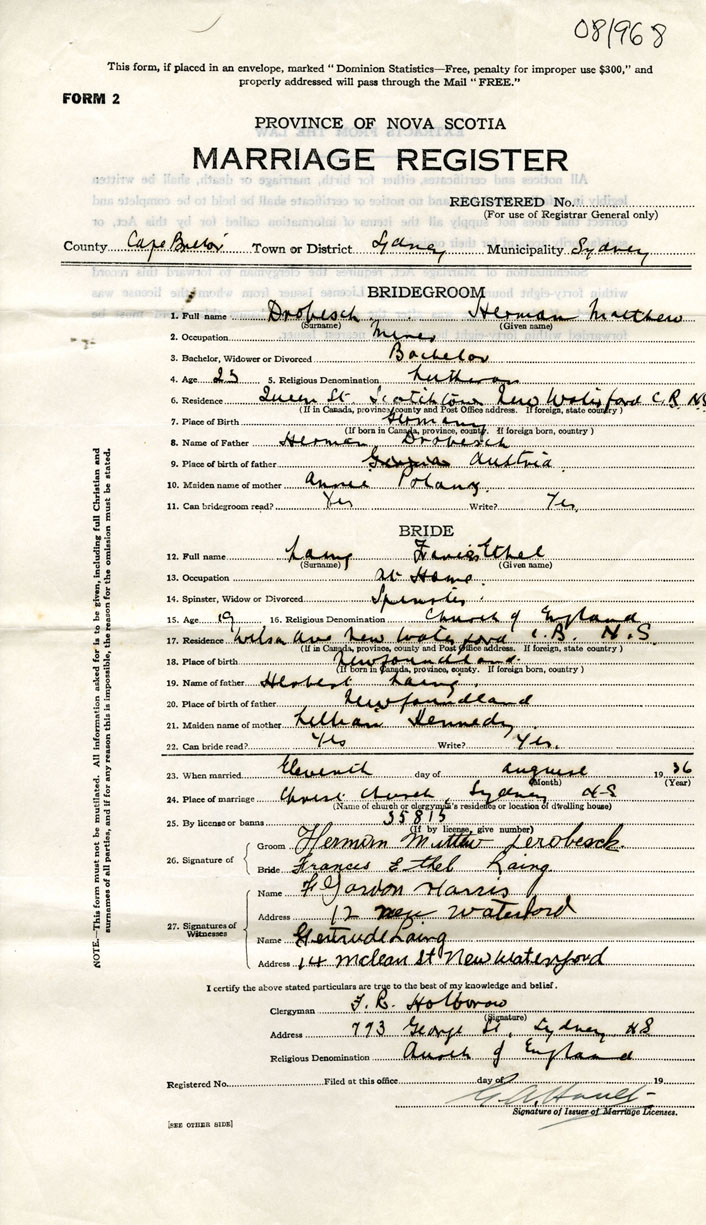 08/968
This form, if placed in an envelope, marked "Dominion Statistics—Free, penalty for improper use $300," and
properly addressed will pass through the Mail "FREE."
FORM 2
PROVINCE OF NOVA SCOTIA
MARRIAGE REGISTER
REGISTERED No.
(For use of Registrar General only)
County Cape Breton Town or District Sydney Municipality Sydney
BRIDEGROOM
1. Full name Drobesch Herman Matthew
(Surname) (Given name)
2. Occupation Miner
3. Bachelor, Widower or Divorced Bachelor
4. Age 23 5. Religious Denomination Lutheran
6. Residence Queen St. Scotchtown New Waterford C.B. N.S
(If in Canada, province, county and Post Office address. If foreign, state country)
7. Place of Birth Germany
(If born in Canada, province, county. If foreign born, country)
8. Name of Father Herman Drobesch
9. Place of birth of father Austria
10. Maiden name of mother Annie
11. Can bridegroom read? Yes Write? Yes
BRIDE
12. Full name Laing Ethel
(Surname) (Given name)
13. Occupation At Home
14. Spinster, Widow or Divorced Spinster
15. Age 19 16. Religious Denomination Church of England
17. Residence Wilson Ave New Waterford C.B. N.S.
(If in Canada, province, county and Post Office address. If foreign, state country)
18. Place of birth Newfoundland
(If born in Canada, province, county. If foreign born, country)
19. Name of father Herbert Laing
20. Place of birth of father Newfoundland
21. Maiden name of mother Lillian Kennedy
22. Can bride read? Yes Write? Yes.
23. When married Eleventh day of August 1936
(Month) (Year)
24. Place of marriage Christ Church, Sydney N.S
(Name of church or clergyman's residence or location of dwelling house)
25. By license or banns 35815
(If by license, give number)
26. Signature of
Groom Herman Drobesch
Bride Frances Ethel Laing
27. Signatures of Witnesses
Name F Gordon Harris
Address 12 New Waterford
Name Gertrude Laing
Address 14 Mclean St New Waterford
I certify the above stated particulars are true to the best of my knowledge and belief.
Clergyman T.R. Holborow
(Signature)
Address 773 George St, Sydney N.S
Religious Denomination Church of England
Registered No. Filed at this office day of 19
Signature of Issuer of Marriage Licenses.
[SEE OTHER SIDE]
NOTE.—This form must not be mutilated. All information asked for is to be given, including full Christian and
surnames of all parties, and if for any reason this is impossible, the reason for the omission must be stated.